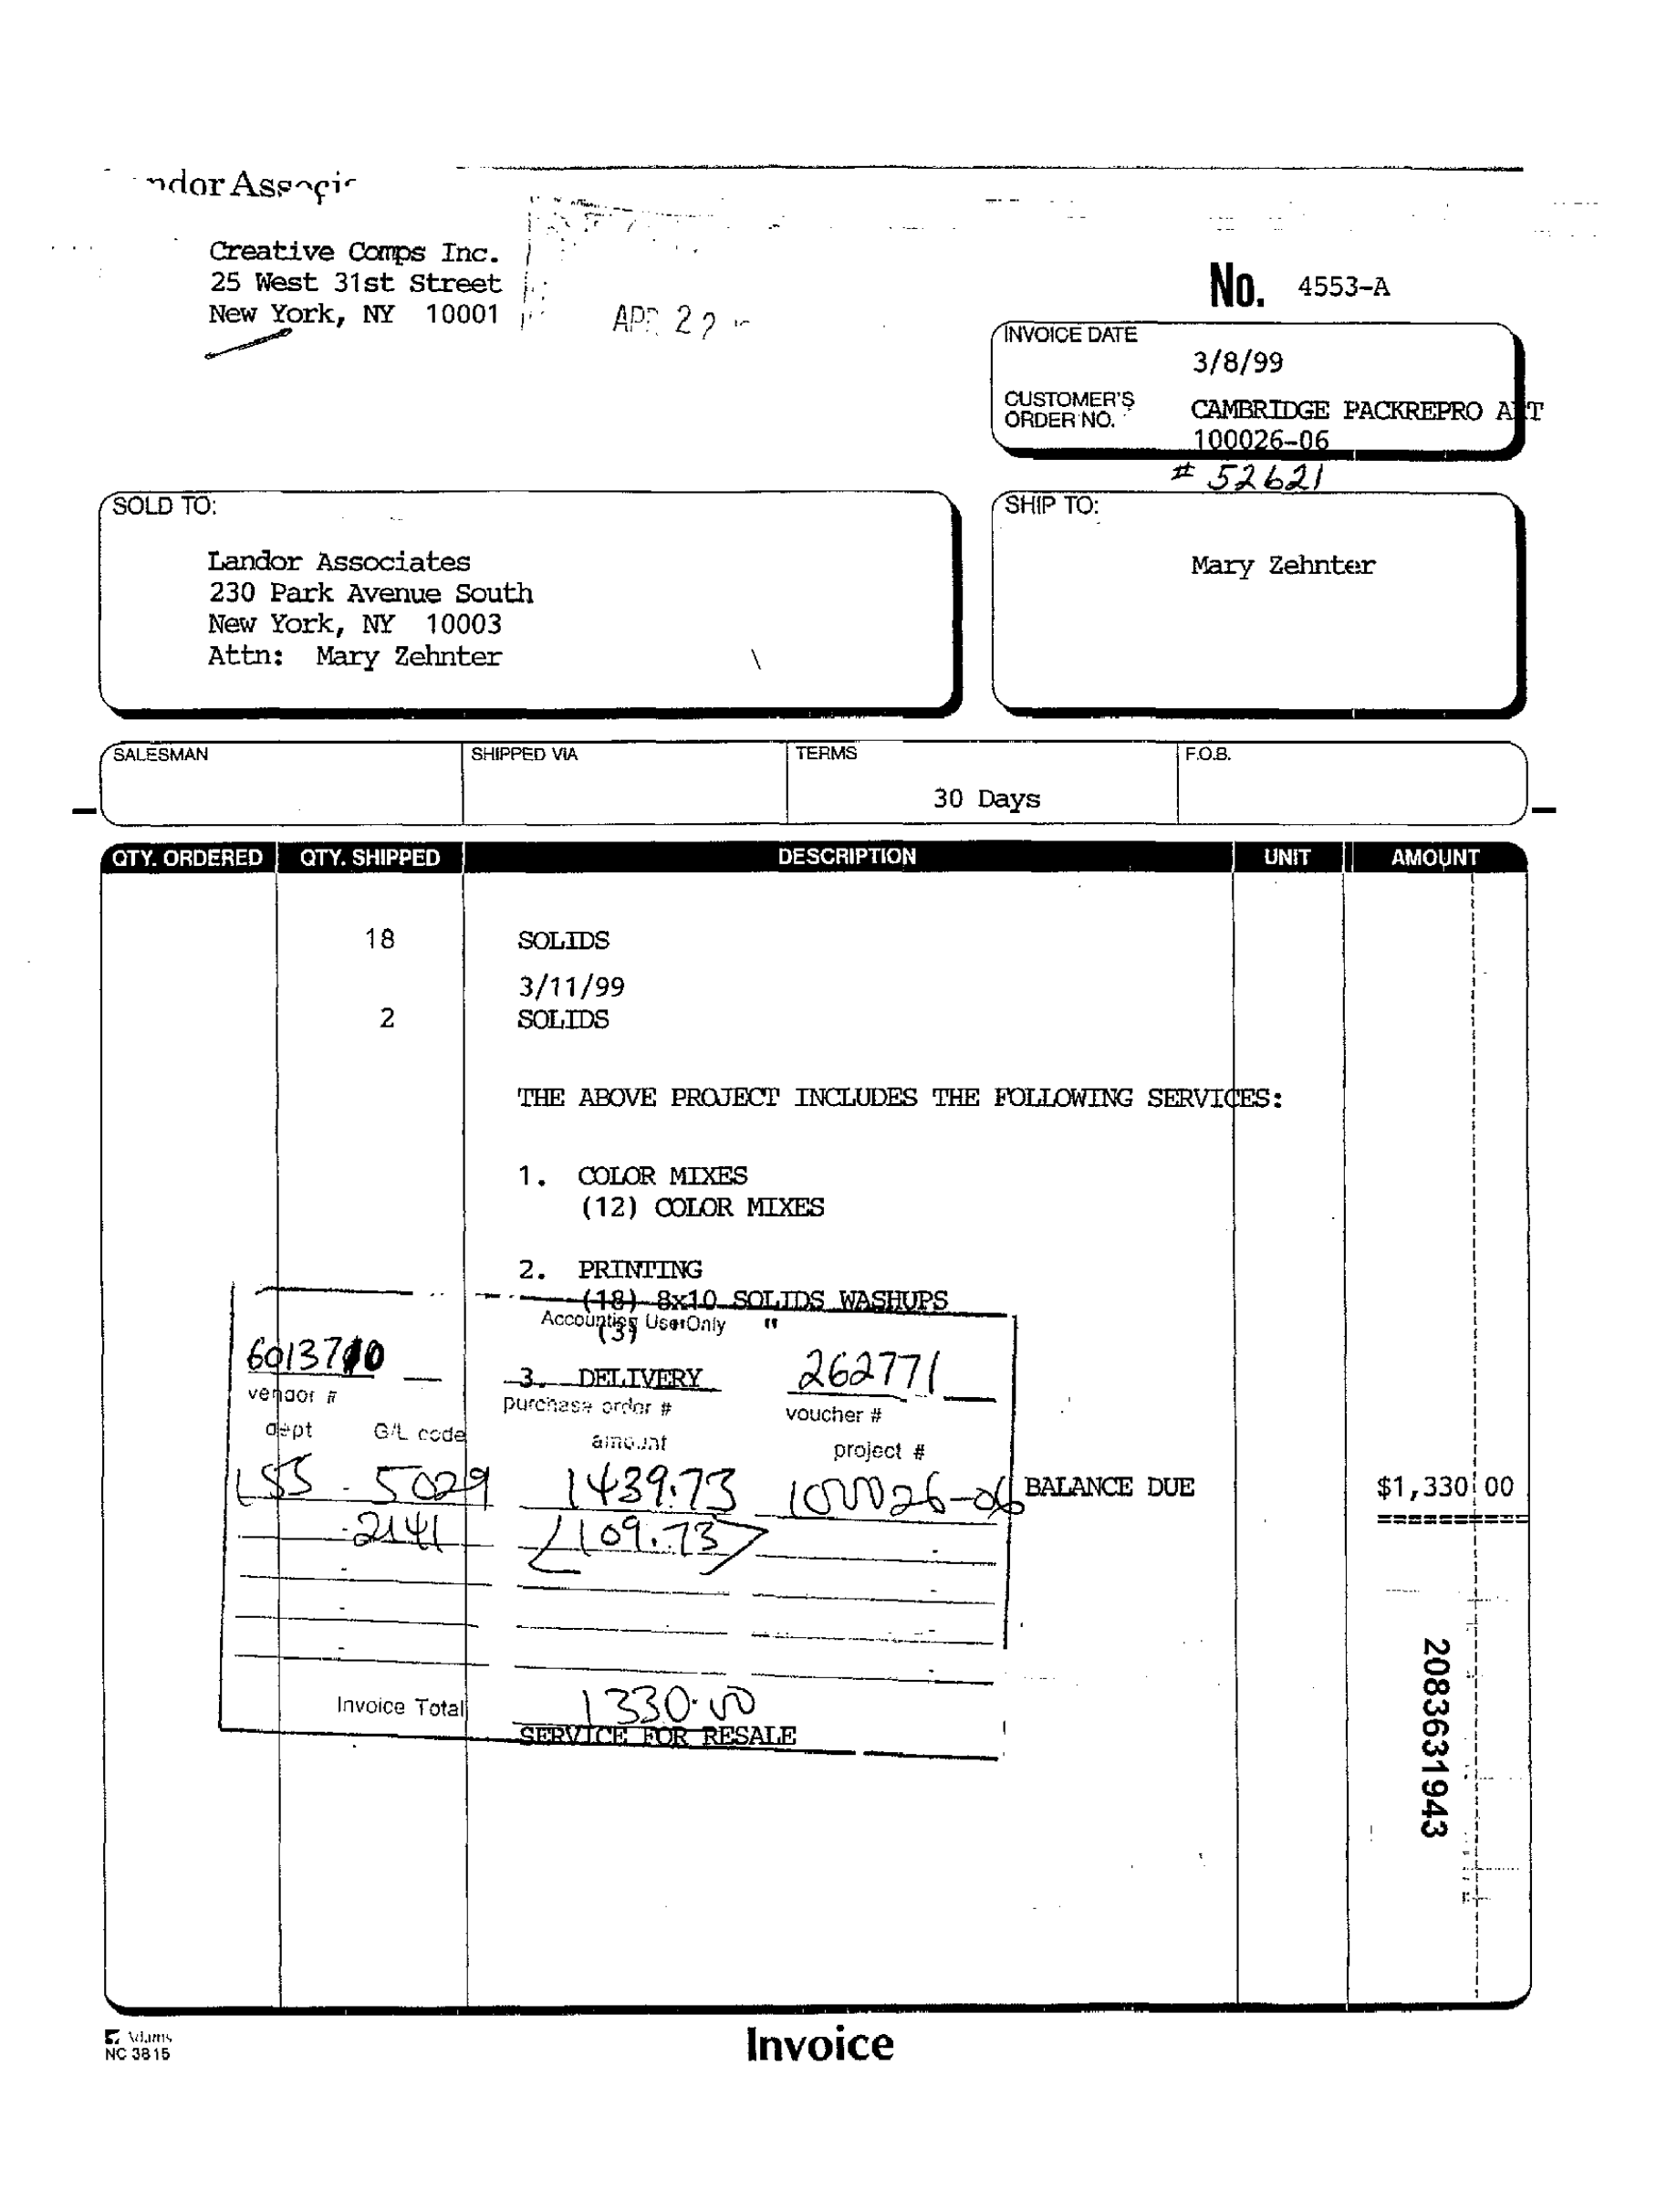 Creative Comps Inc.
25 West 31st Street
New York, NY 10001
No. 4553-A
INVOICE DATE
3/8/99
CUSTOMER'S
ORDER NO.
CAMBRIDGE PACKREPRO ART
100026-06
# 52621
SOLD TO:
Landor Associates
230 Park Avenue South
New York, NY 10003
Attn: Mary Zehnter
SHIP TO:
Mary Zehnter
SALESMAN
SHIPPED VIA
TERMS
30 Days
F.O.B.
QTY. ORDERED QTY. SHIPPED DESCRIPTION UNIT AMOUNT
18 SOLIDS
3/11/99
2 SOLIDS
THE ABOVE PROJECT INCLUDES THE FOLLOWING SERVICES:
1. COLOR MIXES
(12) COLOR MIXES
2. PRINTING
(18) 8x10 SOLIDS WASHUPS
(3) "
Accounting Use Only
3. DELIVERY
262771
vendor # purchase order # voucher #
dept G/L code amount project #
LSS - 5029 1439.73 100026-06
BALANCE DUE $1,330 00
- 2141 <109.73>
Invoice Total 1330.00
SERVICE FOR RESALE
2083631943
Adams
NC 3815
Invoice